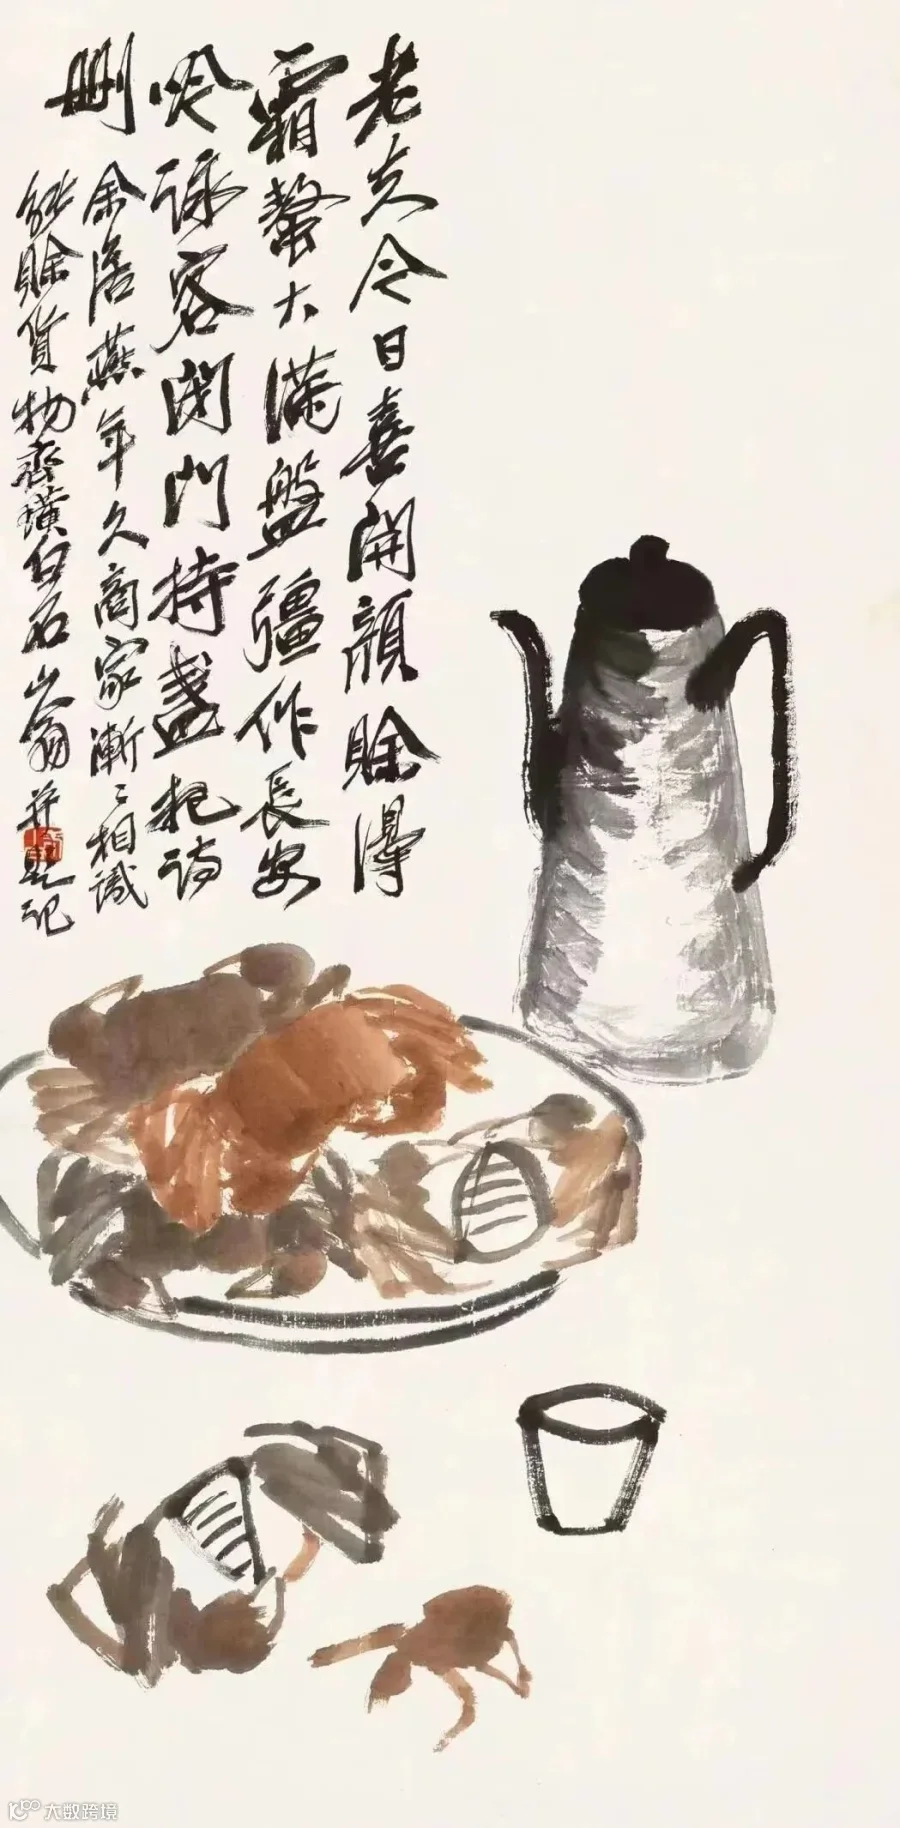 老夫今日喜開顏賒得
霜螯大滿盤彊作長安
吟詠客閉門持盞把詩
刪
余居燕年久商家漸〻相識
能賒貨物齊璜白石山翁并題記
大数跨境